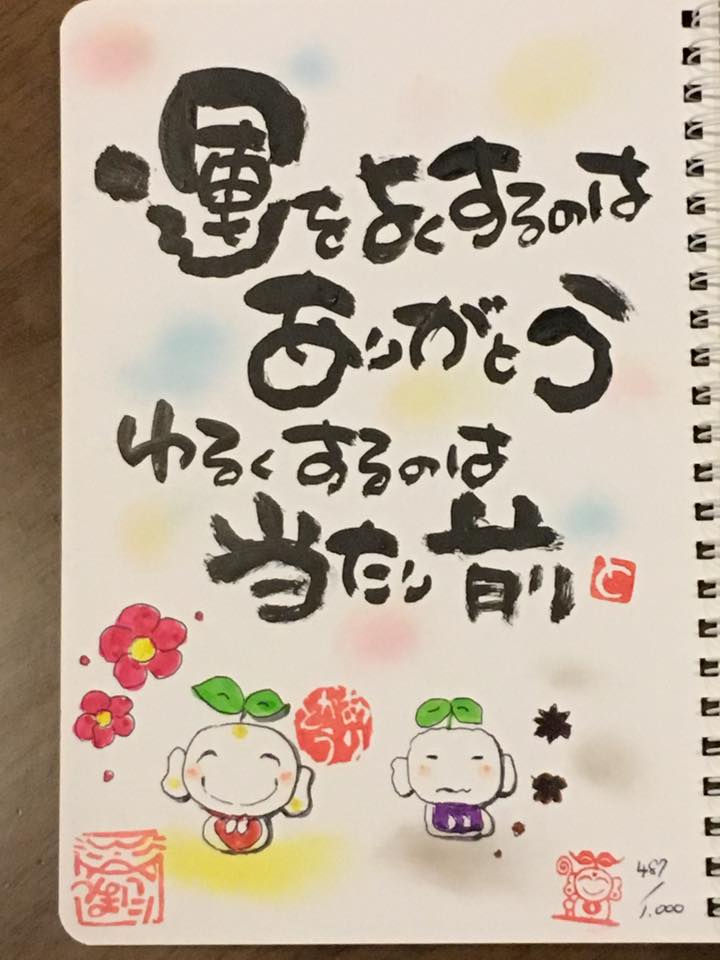 運をよくするのは
ありがとう
わるくするのは
当たり前
と
ありがとう
487/1.000